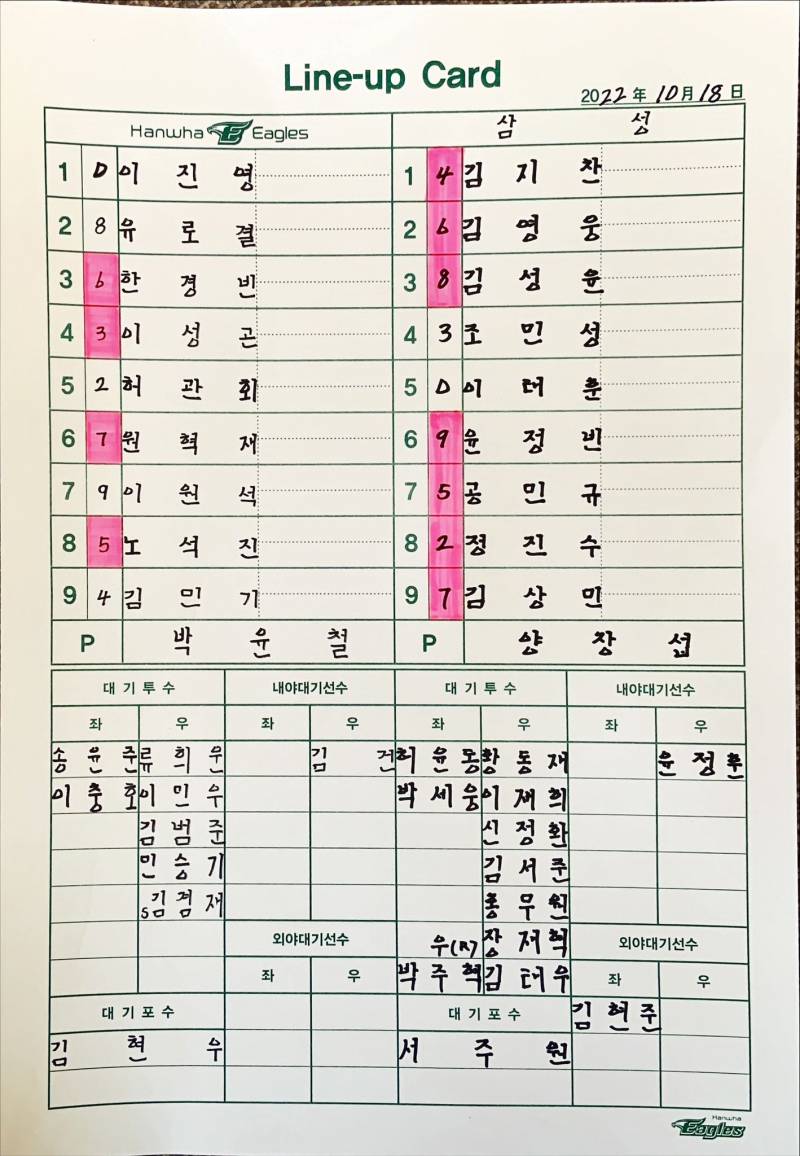 Line-up Card
2022年 10月 18日
Hanwha Eagles 삼 성
1 D 이 진 영 1 4 김 지 찬
2 8 유 로 결 2 6 김 영 웅
3 6 한 경 빈 3 8 김 성 윤
4 3 이 성 곤 4 3 조 민 성
5 2 허 관 회 5 D 이 태 훈
6 7 원 혁 재 6 9 윤 정 빈
7 9 이 원 석 7 5 공 민 규
8 5 노 석 진 8 2 정 진 수
9 4 김 민 기 9 7 김 상 민
P 박 윤 철 P 양 창 섭
대 기 투 수 내야대기선수 대 기 투 수 내야대기선수
좌 우 좌 우 좌 우 좌 우
송 윤 준 류 희 운 김 건 허 윤 동 황 동 재 윤 정 훈
이 충 호 이 민 우 박 세 웅 이 재 희
김 범 준 신 정 환
민 승 기 김 서 준
s김 겸 재 홍 무 원
외야대기선수 우(R) 장 재 혁 외야대기선수
좌 우 박 주 혁 김 태 우 좌 우
대 기 포 수 대 기 포 수 김 현 준
김 현 우 서 주 원
Hanwha
Eagles